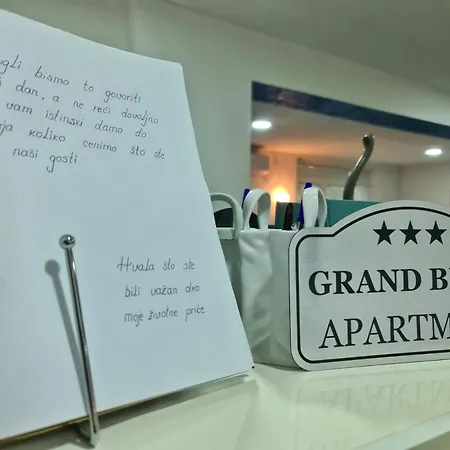 bismo to govoriti
dan, a ne reći dovoljno
vam istinski damo do
koliko cenimo što ste
naši gosti
Hvala što ste
bili važan deo
moje životne priče
GRAND B
APARTM